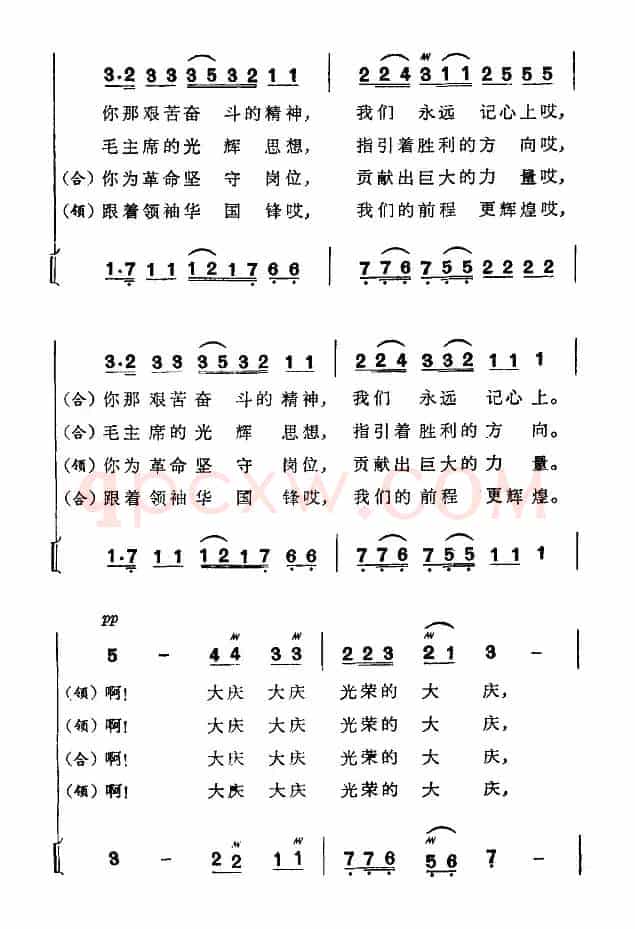 3·2 33 3532 11 | 224 311 2555 |
你那艰苦奋 斗的精神， 我们 永远 记心上哎，
毛主席的光 辉 思想， 指引着胜利的方 向哎，
（合）你为革命坚 守 岗位， 贡献出巨大的力 量哎，
（领）跟着领袖华 国 锋哎， 我们的前程 更辉煌哎，
1·7 11 1217 66 | 776 755 2222 |
3·2 33 3532 11 | 224 332 11 1 |
（合）你那艰苦奋 斗的精神， 我们 永远 记心上。
（合）毛主席的光 辉 思想， 指引着胜利的方 向。
（领）你为革命坚 守 岗位， 贡献出巨大的力 量。
（合）跟着领袖华 国 锋哎， 我们的前程 更辉煌。
qpcxw.COM
1·7 11 1217 66 | 776 755 11 1 |
pp
5 - 44 33 | 223 21 3 -
（领）啊！ 大庆 大庆 光荣的 大 庆，
（领）啊！ 大庆 大庆 光荣的 大 庆，
（合）啊！ 大庆 大庆 光荣的 大 庆，
（领）啊！ 大庆 大庆 光荣的 大 庆，
3 - 22 11 | 776 56 7 -